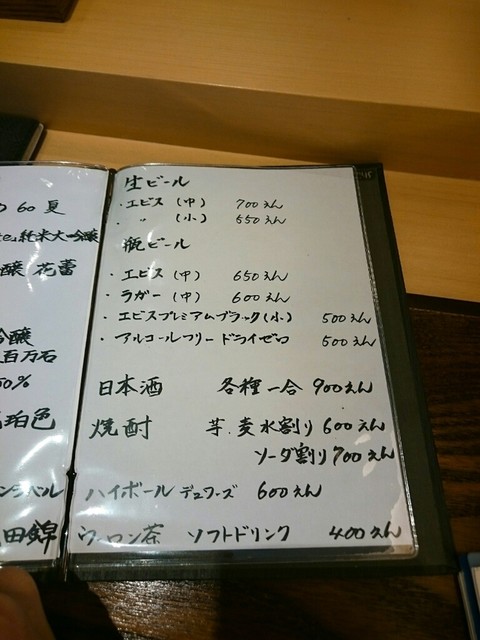 60 夏
純米大吟醸
醸 花蕾
吟醸
百万石
50%
琥珀色
ンラベル
田錦
生ビール
・エビス (中) 700えん
〃 (小) 550えん
瓶ビール
・エビス (中) 650えん
・ラガー (中) 600えん
・エビスプレミアムブラック(小) 500えん
・アルコールフリー ドライゼロ 500えん
日本酒 各種一合 900えん
焼酎 芋.麦水割り 600えん
ソーダ割り 700えん
ハイボール デュワーズ 600えん
ウーロン茶 ソフトドリンク 400えん